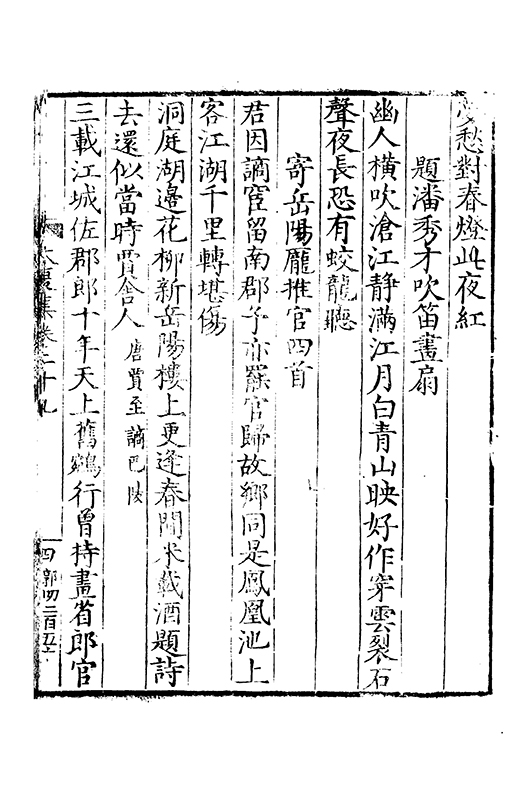 愁對春燈此夜紅
題潘秀才吹笛畫扇
幽人橫吹滄江靜滿江月白青山映好作穿雲裂石
聲夜長恐有蛟龍聽
寄岳陽龐推官四首
君因謫宦留南郡予亦罷官歸故鄉同是鳳凰池上
客江湖千里轉堪傷
洞庭湖邊花柳新岳陽樓上更逢春閒來載酒題詩
去還似當時賈舍人唐賈至謫巴陵
三載江城佐郡郎十年天上舊鵷行曾持畫省郎官
大復集卷二十九
四 郭四二百五十